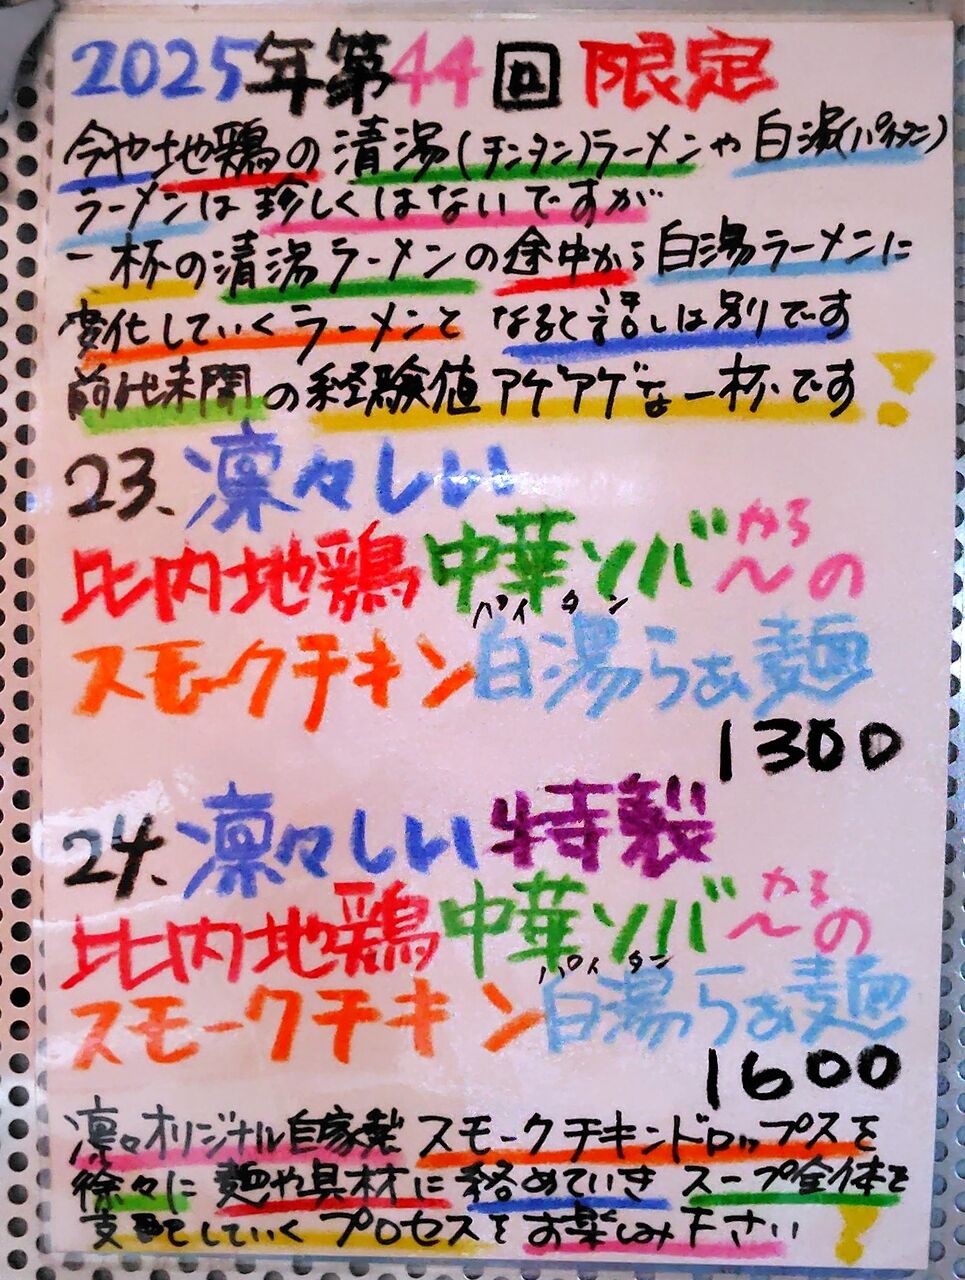 2025年第44回限定
今や地鶏の清湯(チンタン)ラーメンや白湯(パイタン)
ラーメンは珍しくはないですが
一杯の清湯ラーメンの途中から白湯ラーメンに
変化していくラーメンとなると話しは別です
前代未聞の経験値アゲアゲな一杯です!
23、凛々しい
比内地鶏中華ソバ〜の
から
スモークチキン白湯らぁ麺
パイタン
1300
24、凛々しい特製
比内地鶏中華ソバ〜の
から
スモークチキン白湯らぁ麺
パイタン
1600
凛々オリジナル自家製スモークチキンドロップスを
徐々に麺や具材に絡めていきスープ全体を
支配していくプロセスをお楽しみ下さい!